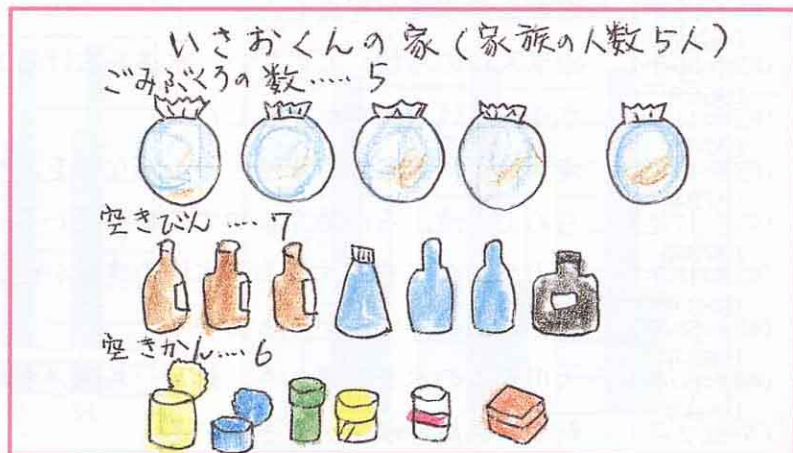 いさおくんの家(家族の人数5人)
ごみぶくろの数‥‥‥5
空きびん‥‥7
空きかん‥‥6